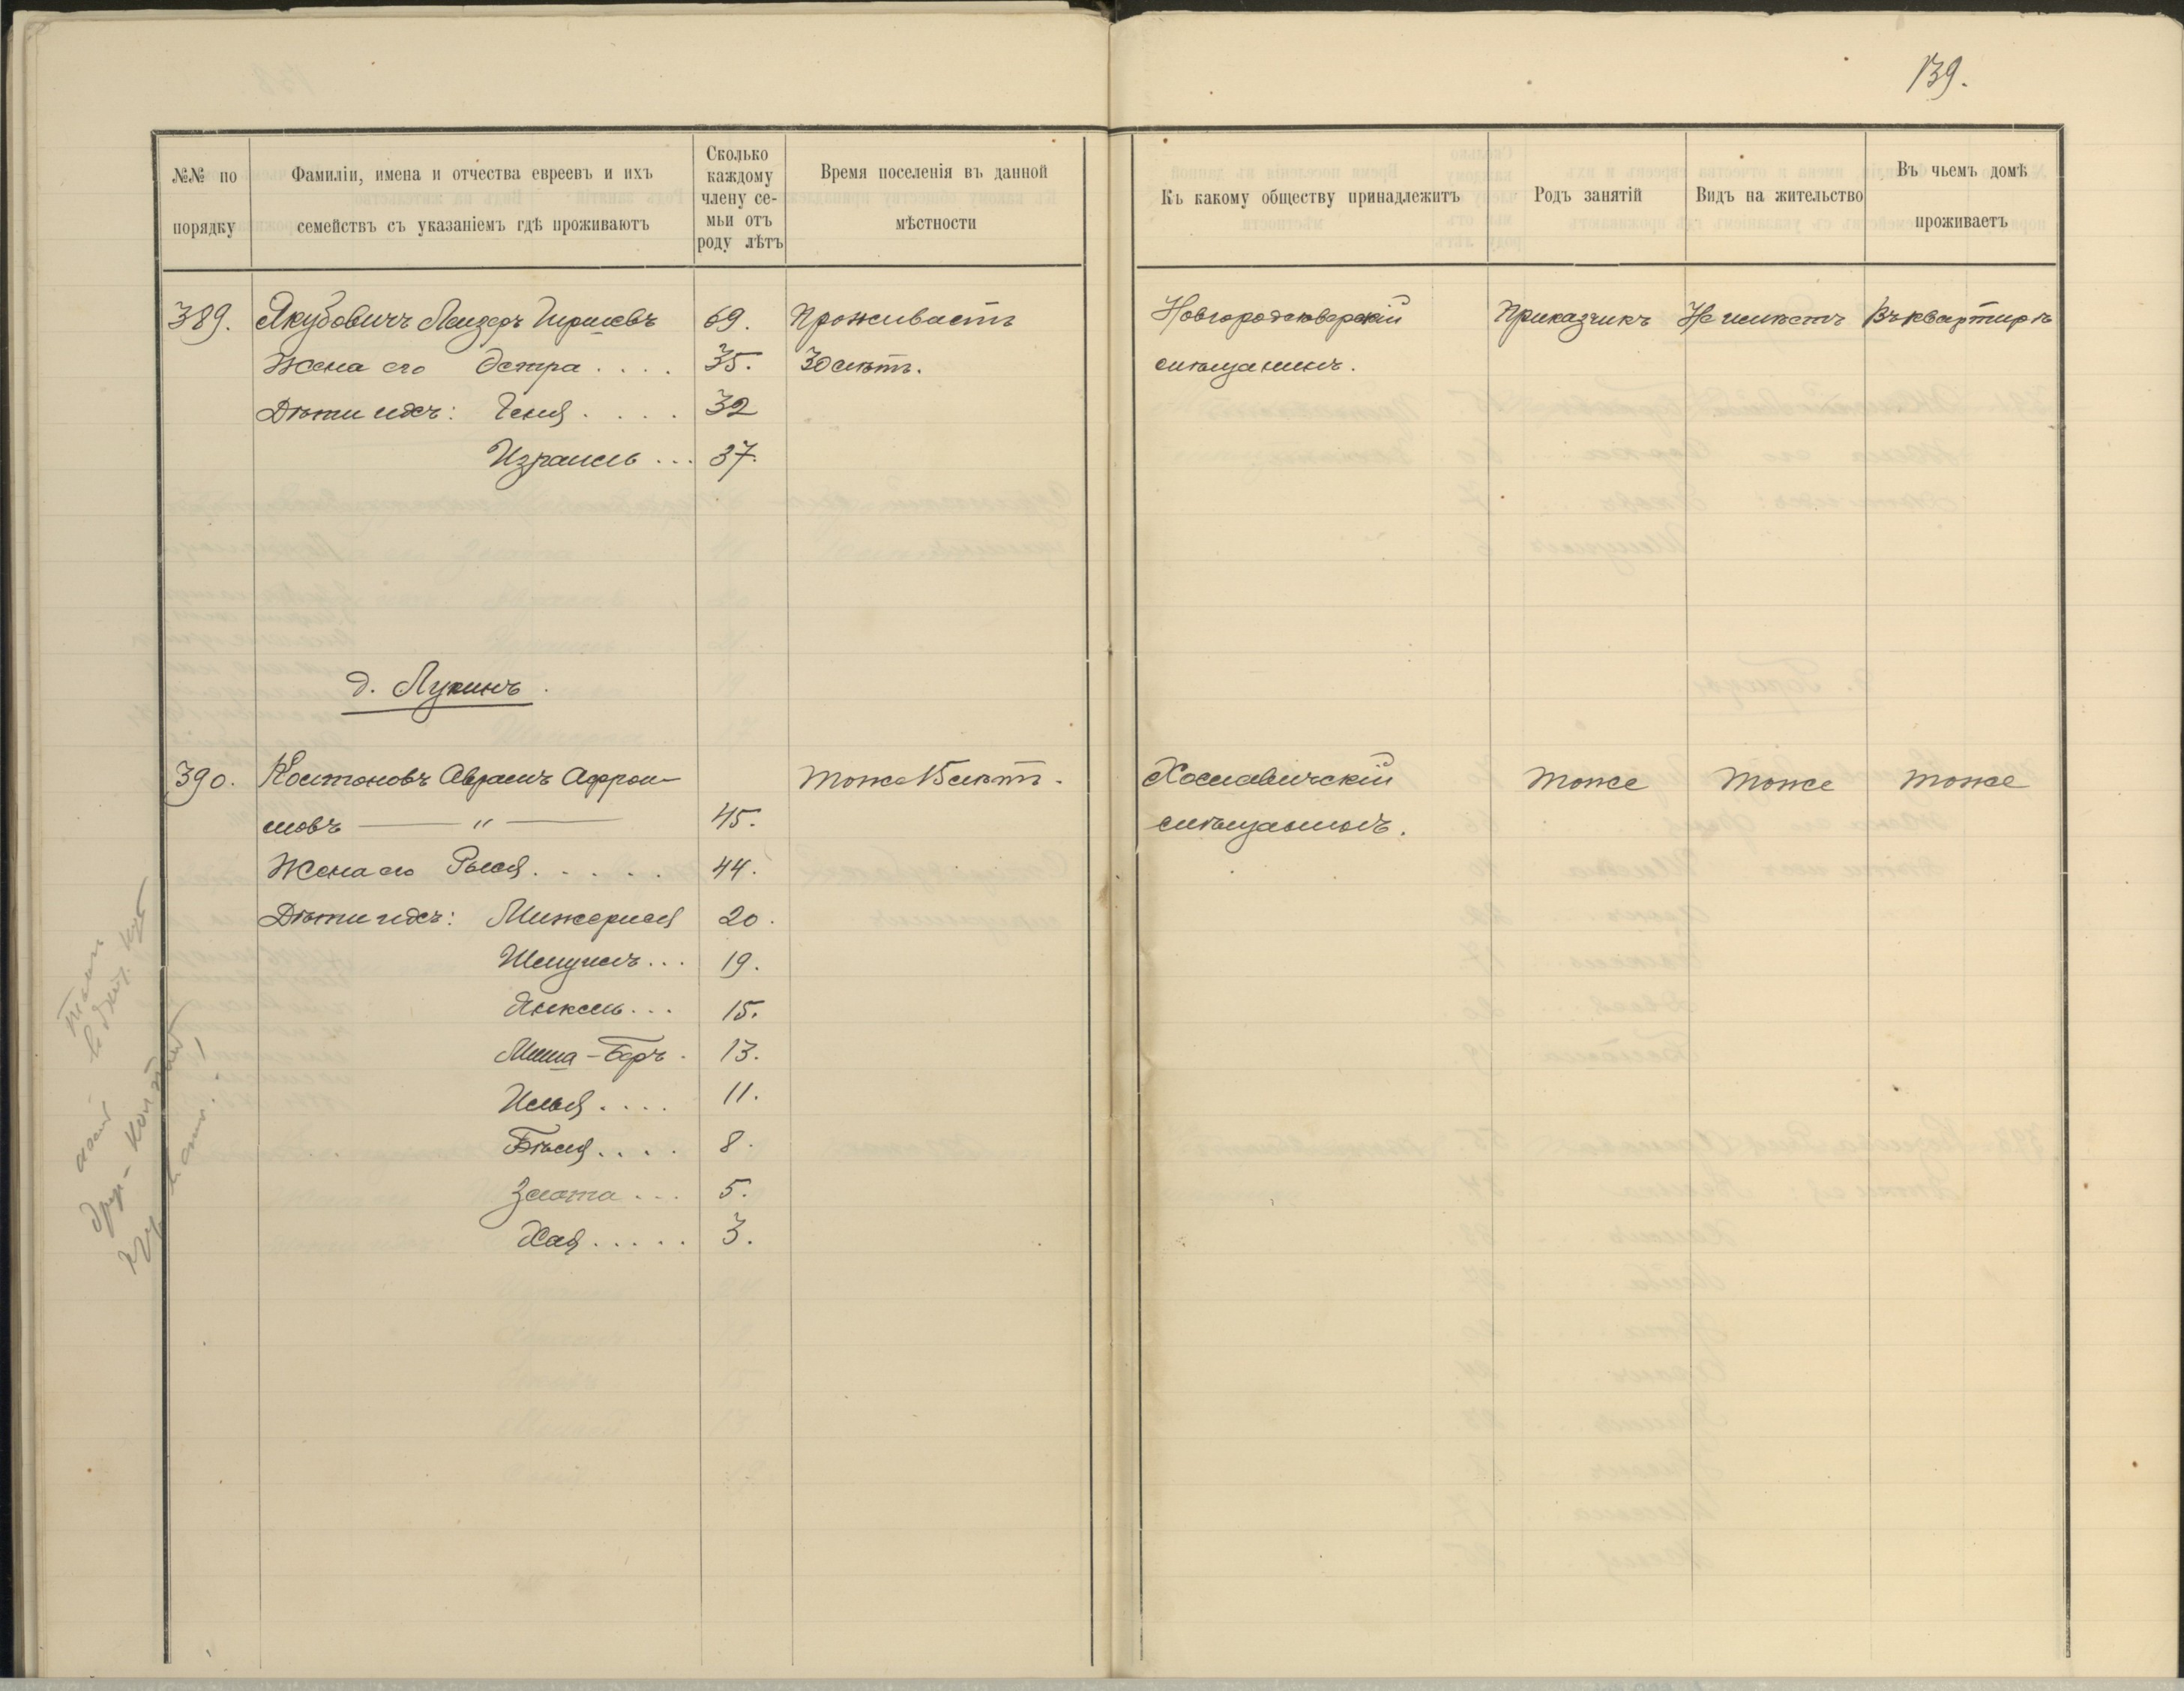 139.
№№ по порядку
Фамиліи, имена и отчества евреевъ и ихъ семействъ съ указаніемъ гдѣ проживаютъ
Сколько каждому члену семьи отъ роду лѣтъ
Время поселенія въ данной мѣстности
Къ какому обществу принадлежитъ
Родъ занятій
Видъ на жительство
Въ чьемъ домѣ проживаетъ
389. Якубовичъ Лейзеръ Гиршевъ 69. Проживаетъ Новгородсѣверскій Приказчикъ Не имѣетъ Въ квартирѣ
Жена его Эстра .... 35. 30 лѣтъ. мѣщанинъ.
Дѣти ихъ: Геня .... 32
Израиль ... 37.
д. Лукинъ.
390. Костоновъ Аврамъ Афрои- Тоже 15 лѣтъ. Хославичскій Тоже Тоже Тоже
мовъ — " — 45. мѣщанинъ.
Жена его Рыся ..... 44.
Дѣти ихъ: 20.
Шмуилъ ... 19.
Янкель ... 15.
Миша-Беръ. 13.
Илья .... 11.
Бѣля .... 8.
Злота ... 5.
Хая ..... 3.